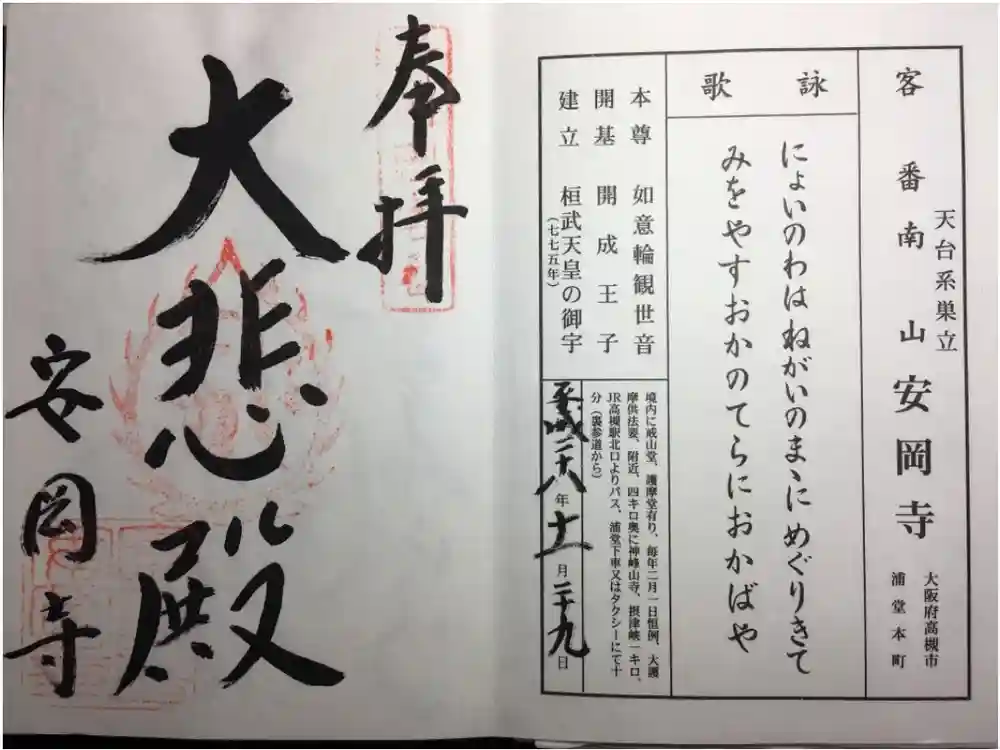 客番 南山 安岡寺
天台系巣立
大阪府高槻市
浦堂本町
詠歌
にょいのわはねがいのまゝにめぐりきて
みをやすおかのてらにおかばや
本尊 如意輪観世音
開基 開成王子
建立 桓武天皇の御宇
(七七五年)
境内に戒山堂、護摩堂有り、毎年二月一日恒例、大護
摩供法要、附近、四キロ奥に神峰山寺、摂津峡一キロ、
JR高槻駅北口よりバス、浦堂下車又はタクシーにて十
分(裏参道から)
平成二十八年十一月二十九日
奉拝
大悲殿
安岡寺